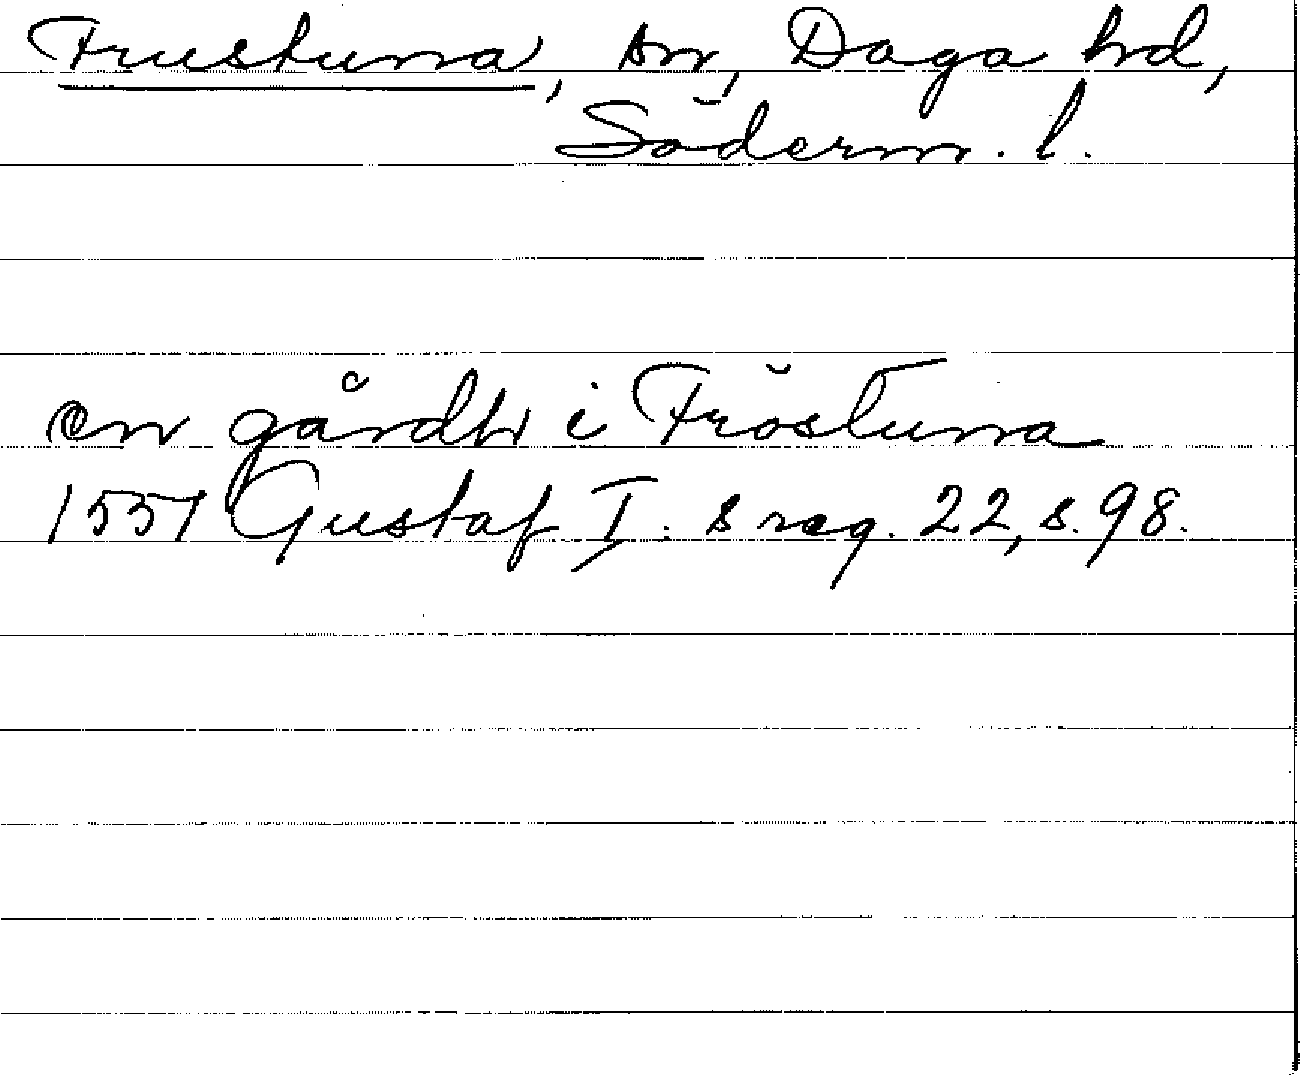 Frustuna, sn, Daga hd,
Söderm. l.
en gårdh i Fröstuna
1551 Gustaf I: s reg. 22, s. 98.